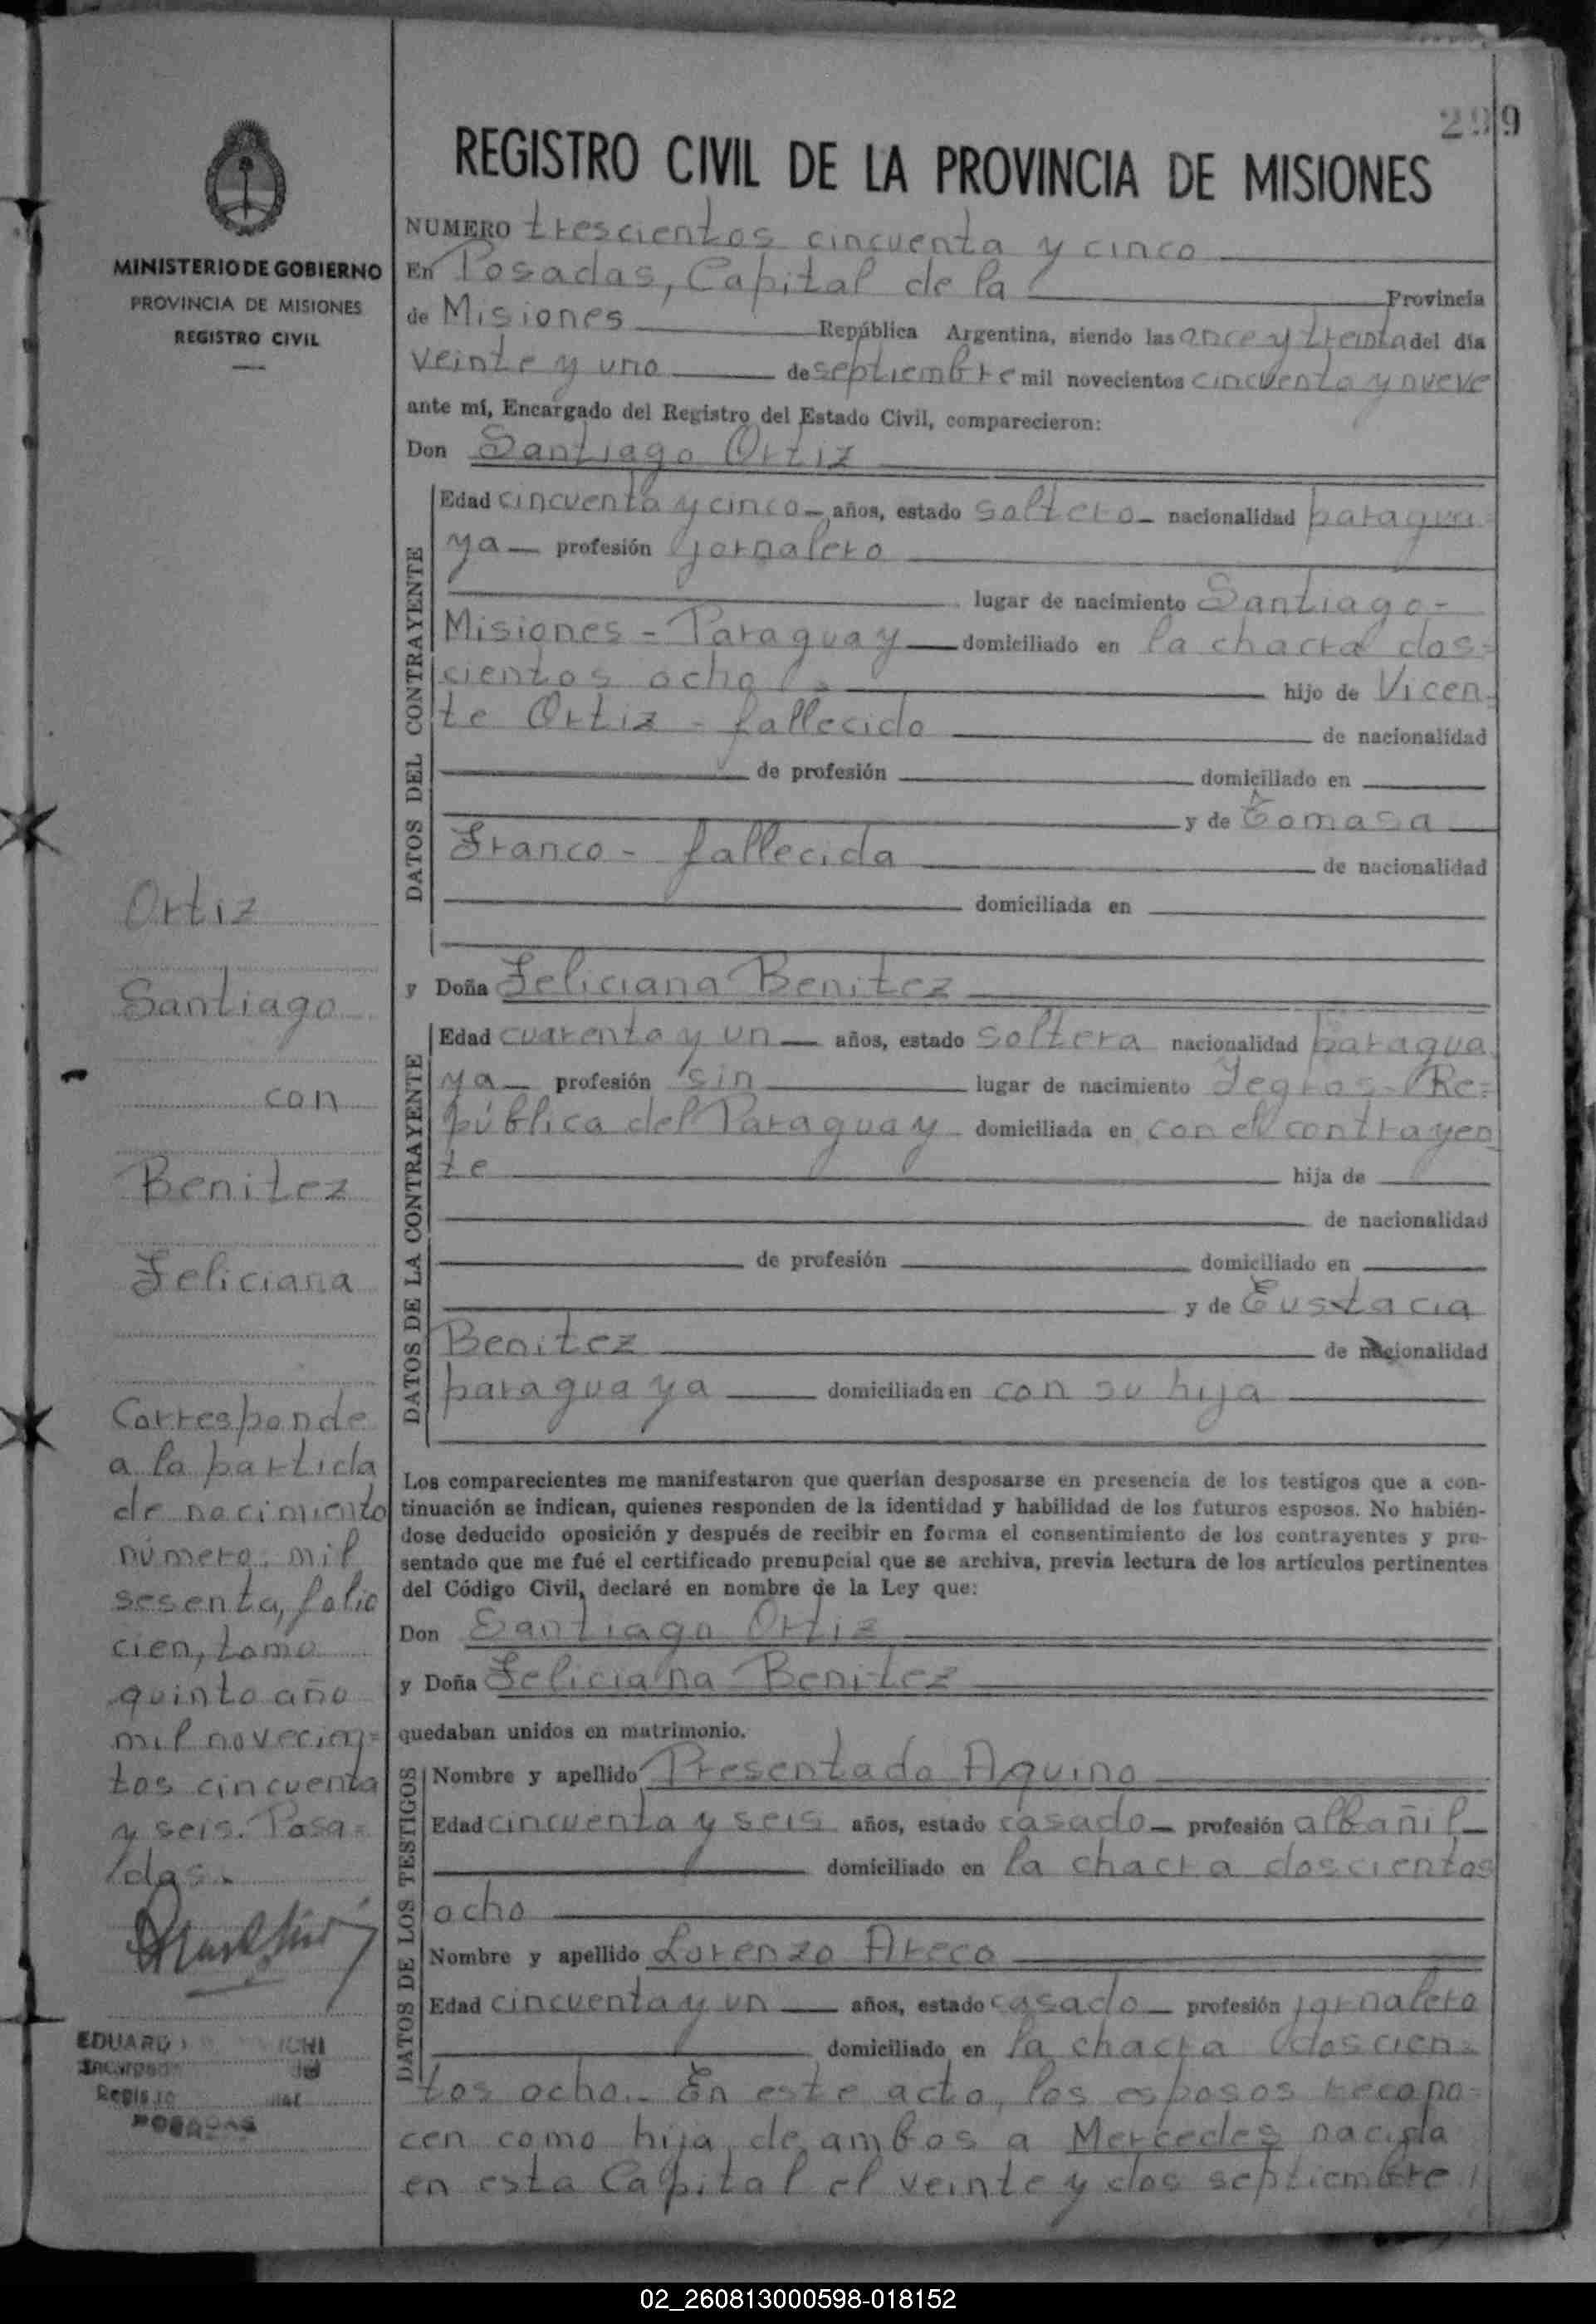 299
REGISTRO CIVIL DE LA PROVINCIA DE MISIONES
MINISTERIO DE GOBIERNO
PROVINCIA DE MISIONES
REGISTRO CIVIL
NUMERO trescientos cincuenta y cinco
En Posadas, Capital de la Provincia
de Misiones República Argentina, siendo las once y treinta del día
veinte y uno de septiembre mil novecientos cincuenta y nueve
ante mí, Encargado del Registro del Estado Civil, comparecieron:
Don Santiago Ortiz
DATOS DEL CONTRAYENTE
Edad cincuenta y cinco años, estado soltero nacionalidad paragua
ya profesión jornalero
lugar de nacimiento Santiago-
Misiones - Paraguay domiciliado en la chacra dos=
cientos ocho hijo de Vicen=
te Ortiz - fallecido de nacionalidad
de profesión domiciliado en
y de Tomasa
Franco - fallecida de nacionalidad
domiciliada en
y Doña Feliciana Benitez
DATOS DE LA CONTRAYENTE
Edad cuarenta y un años, estado soltera nacionalidad paragua
ya profesión sin lugar de nacimiento Yegros-Re=
pública del Paraguay domiciliada en con el contrayen
te hija de
de nacionalidad
de profesión domiciliado en
y de Eustacia
Benitez de nacionalidad
paraguaya domiciliada en con su hija
Los comparecientes me manifestaron que querían desposarse en presencia de los testigos que a con-
tinuación se indican, quienes responden de la identidad y habilidad de los futuros esposos. No habién-
dose deducido oposición y después de recibir en forma el consentimiento de los contrayentes y pre-
sentado que me fué el certificado prenupcial que se archiva, previa lectura de los artículos pertinentes
del Código Civil, declaré en nombre de la Ley que:
Don Santiago Ortiz
y Doña Feliciana Benitez
quedaban unidos en matrimonio.
DATOS DE LOS TESTIGOS
Nombre y apellido Presentado Aquino
Edad cincuenta y seis años, estado casado profesión albañil
domiciliado en la chacra doscientos
ocho
Nombre y apellido Lorenzo Areco
Edad cincuenta y un años, estado casado profesión jornalero
domiciliado en la chacra doscien=
tos ocho.- En este acto, los esposos recono=
cen como hija de ambos a Mercedes nacida
en esta Capital el veinte y dos septiembre
Ortiz
Santiago
con
Benitez
Feliciana
Corresponde
a la partida
de nacimiento
número mil
sesenta, folio
cien, tomo
quinto año
mil novecien=
tos cincuenta
y seis. Posa=
das.
POSADAS
02_260813000598-018152